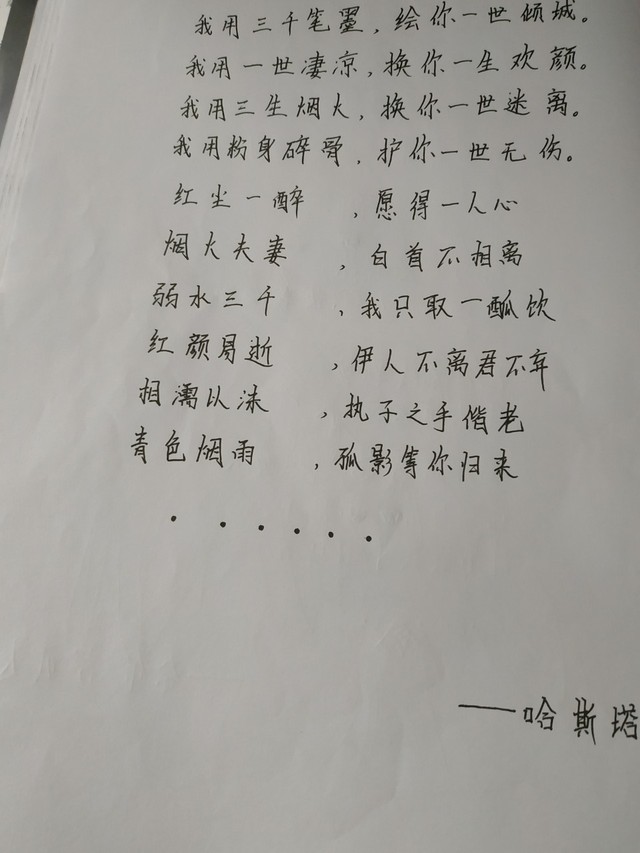 我用三千笔墨，绘你一世倾城。
我用一世凄凉，换你一生欢颜。
我用三生烟火，换你一世迷离。
我用粉身碎骨，护你一世无伤。
红尘一醉，愿得一人心
烟火夫妻，白首不相离
弱水三千，我只取一瓢饮
红颜易逝，伊人不离君不弃
相濡以沫，执子之手偕老
青色烟雨，孤影等你归来
......
——哈斯塔